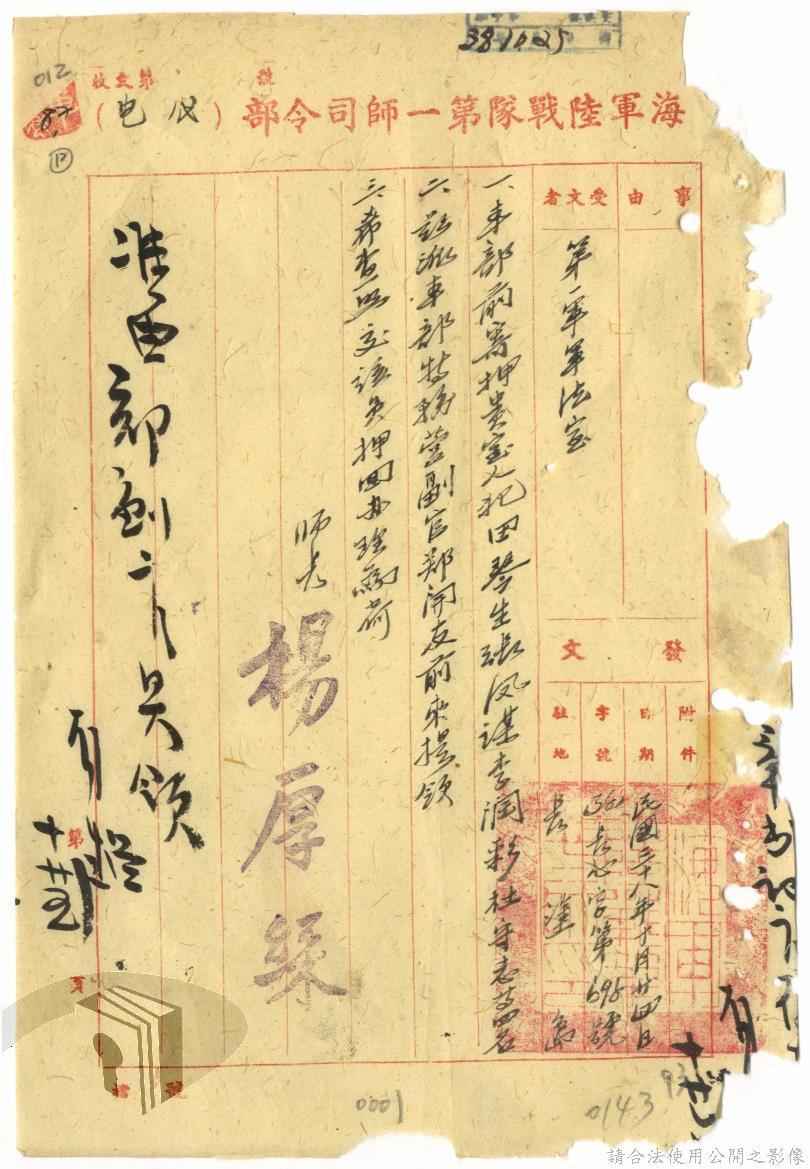 38.10.25
012
收文第 號
海軍陸戰隊第一師司令部(代電)
事由
受文者
第一軍軍法室
發文
附件
日期
民國三十八年十月廿四日
字號
長心字第695號
駐地
長塗島
一、本部前寄押貴室人犯田琴生張鳳謀李潤彩杜守志等四名
二、茲派本部特務營副官鄭開友前來提領
三、希查照交該員押回辦理為荷
師長
楊厚綵
准由部副官具領
第
頁
檔號
0001
0143
93
請合法使用公開之影像